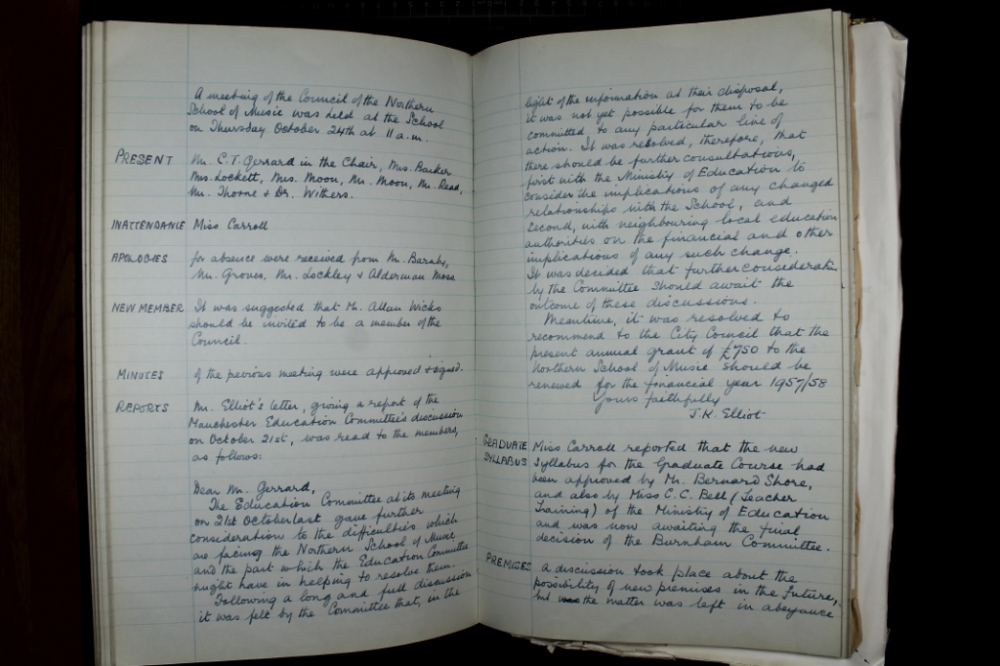 A meeting of the Council of the Northern
School of Music was held at the School
on Thursday October 24th at 11 a.m.
PRESENT Mr. C.T. Gerrard in the Chair, Mrs. Barker
Mrs. Lockett, Mrs. Moon, Mr. Moon, Mr. Read,
Mr. Thorne & Dr. Withers.
IN ATTENDANCE Miss Carroll
APOLOGIES for absence were received from Mr. Barabs,
Mr. Groves, Mr. Lockley & Alderman Moss
NEW MEMBER It was suggested that Mr. Allan Wicks
should be invited to be a member of the
Council.
MINUTES of the pevious meeting were approved & signed.
REPORTS Mr. Elliot's letter, giving a report of the
Manchester Education Committee's discussion
on October 21st, was read to the members,
as follows:
Dear Mr. Gerrard,
The Education Committee at its meeting
on 21st October last gave further
consideration to the difficulties which
are facing the Northern School of Music
and the part which the Education Committee
might have in helping to resolve them.
Following a long and full discussion
it was felt by the Committee that, in the
light of the information at their disposal,
it was not yet possible for them to be
committed to any particular line of
action. It was resolved, therefore, that
there should be further consultations,
first with the Ministry of Education to
consider the implications of any changed
relationships with the School, and
second, with neighbouring local education
authorities on the financial and other
implications of any such change.
It was decided that further consideration
by the Committee should await the
outcome of these discussions.
Meantime, it was resolved to
recommend to the City Council that the
present annual grant of £750 to the
Northern School of Music should be
renewed for the financial year 1957/58
Yours faithfully
J.K. Elliot
GRADUATE SYLLABUS Miss Carroll reported that the new
Syllabus for the Graduate Course had
been approved by Mr. Bernard Shore,
and also by Miss C.C. Bell (Teacher
Training) of the Ministry of Education
and was now awaiting the final
decision of the Burnham Committee.
PREMISES A discussion took place about the
possibility of new premises in the future,
but the matter was left in abeyance